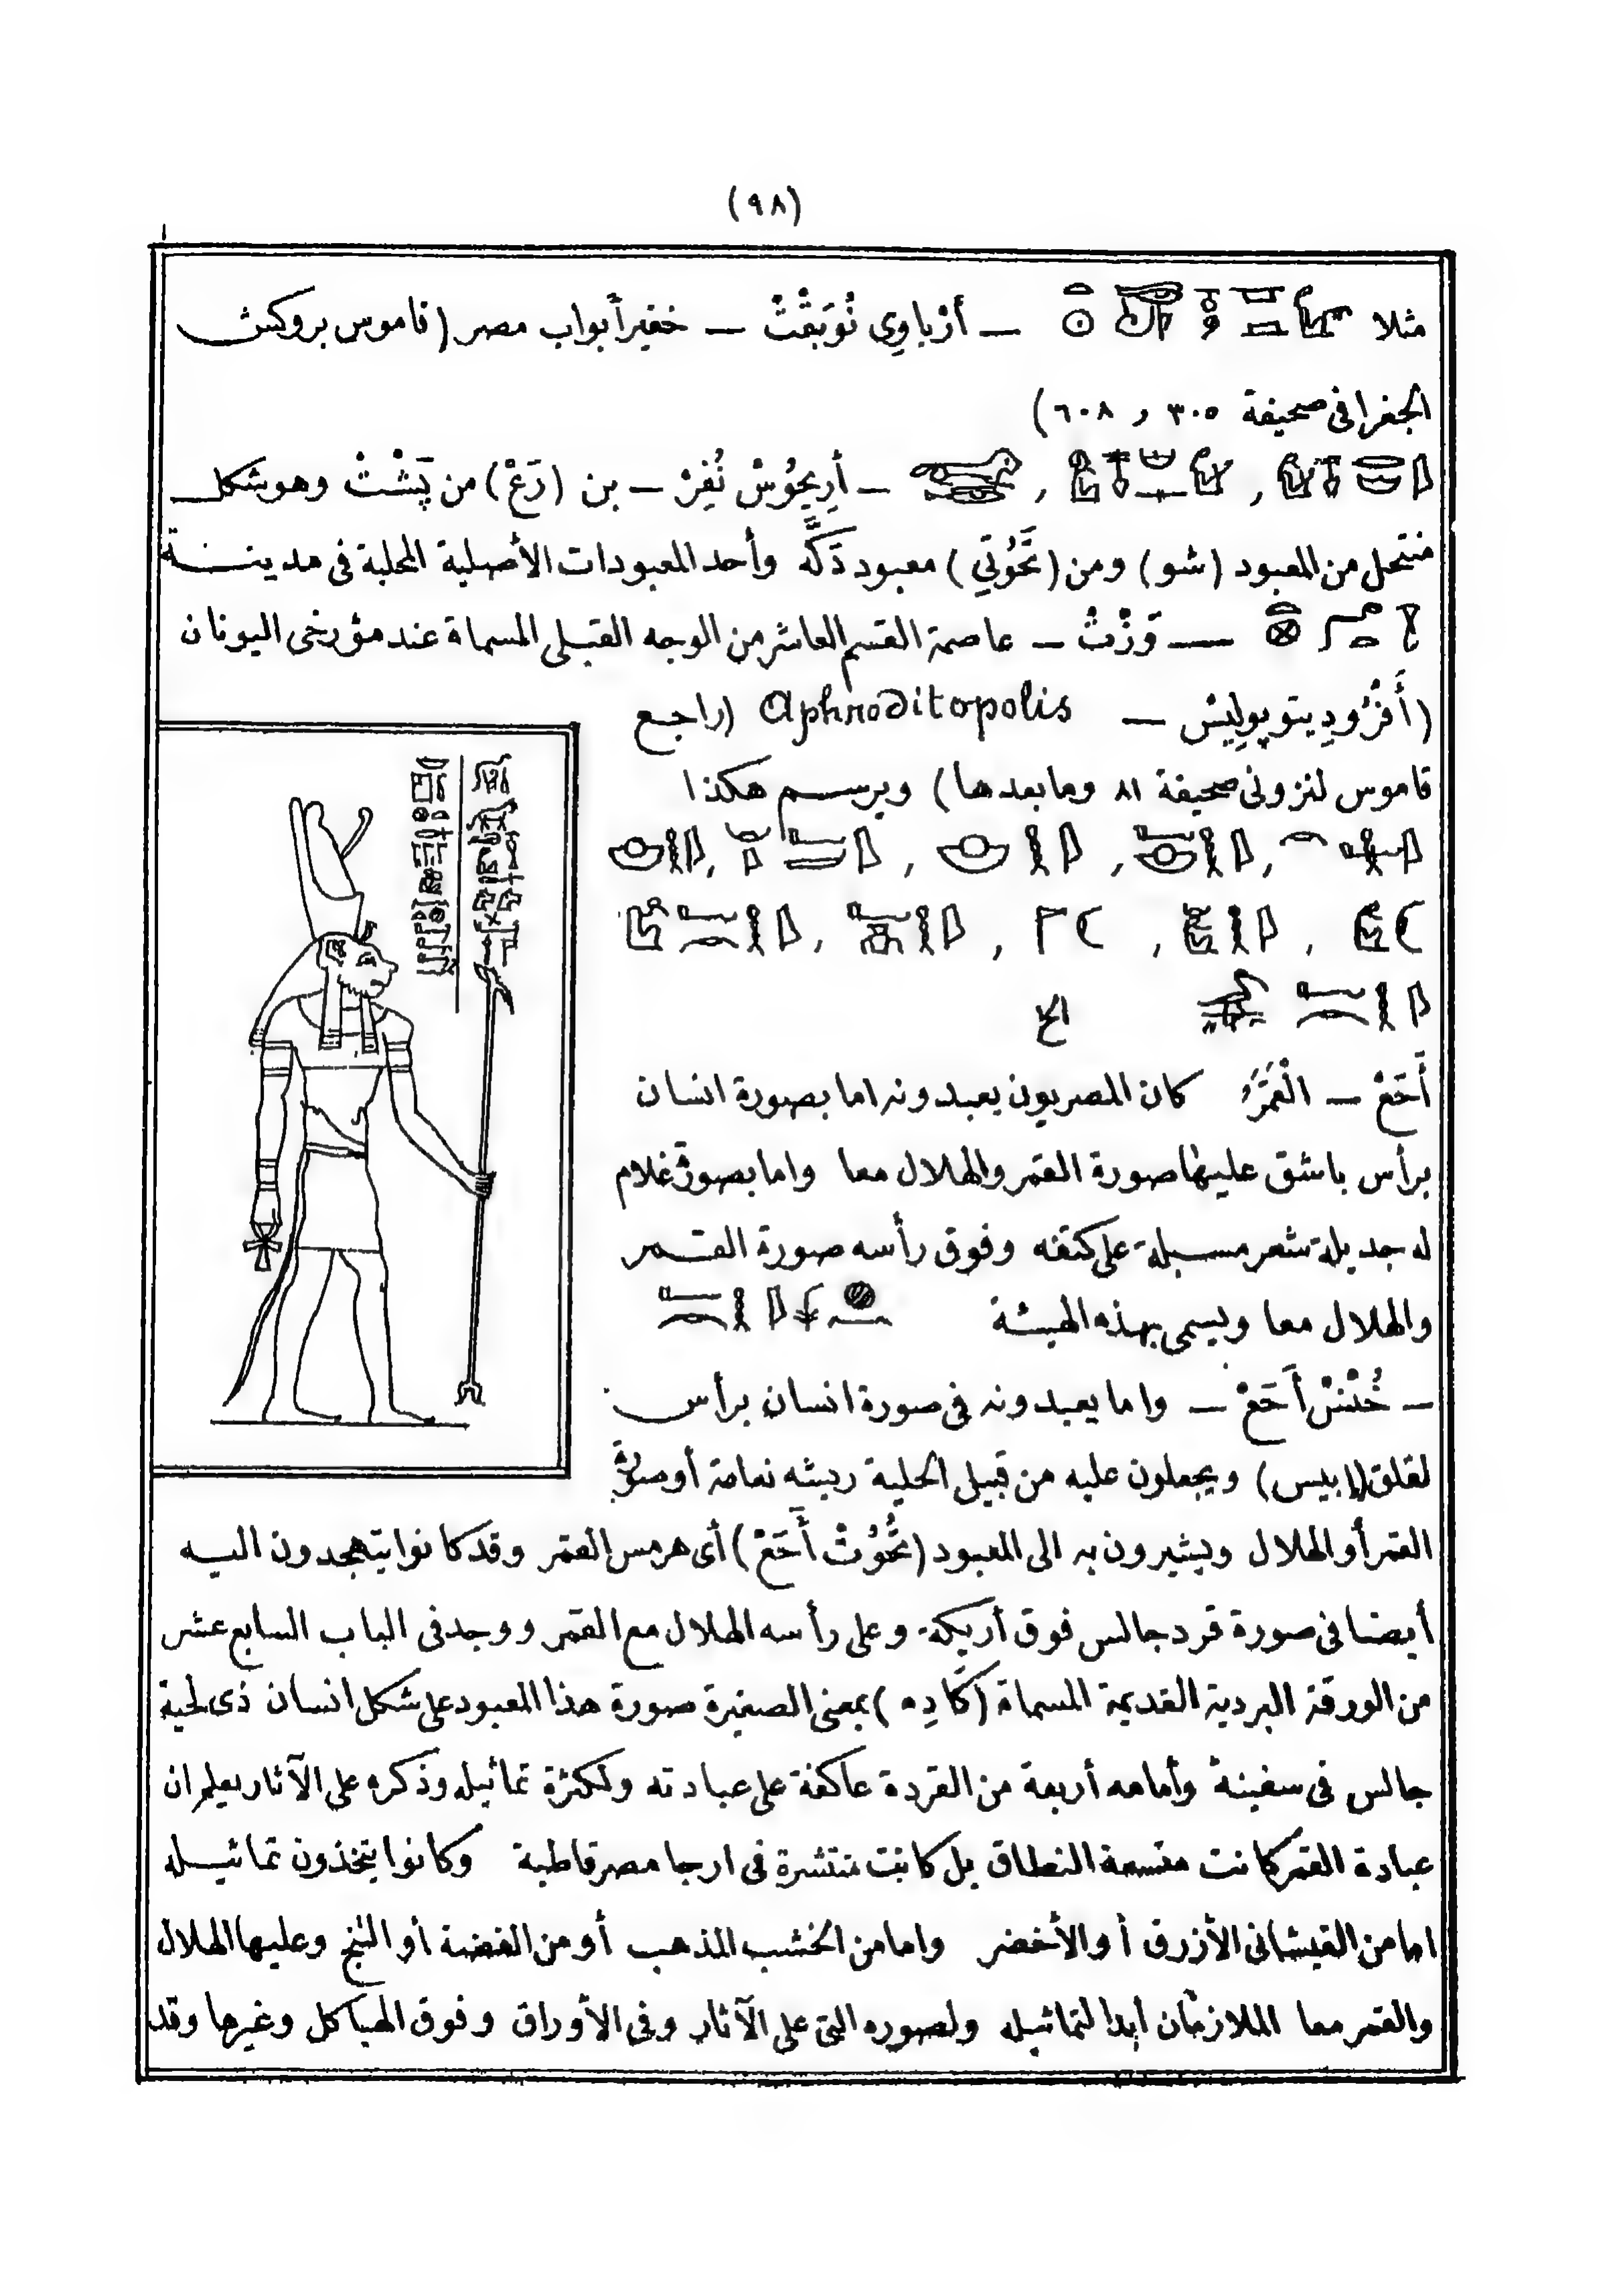 (٩٨)
مثلا — أرْباوِى نُوبَقْتْ — خفيرأبواب مصر (قاموس بروكش
الجغرافى صحيفة ٣٠٥ و ٦٠٨)
— أرِيحُوسْ نُفِرْ — بن (رَعْ) من پَشْتْ وهو شكل
منتحل من المعبود (شو) ومن (تَحُوتِي) معبود دَكَّه وأحد المعبودات الأصلية المحلية فى مدينة
— وَزْتْ — عاصمة القسم العاشر من الوجه القبلى المسماة عند مؤرخى اليونان
(أَفْرُودِيتوپولِيسْ — Aphroditopolis (راجع
قاموس لنزونى صحيفة ٨١ ومابعدها) ويرسم هكذا
الخ
أَحَعْ — الْقَمَرُ كان المصريون يعبدونه اما بصورة انسان
برأس باشق عليها صورة القمر والهلال معا واما بصورة غلام
له جديلة شعر مسبلة على كتفه وفوق رأسه صورة القمر
والهلال معا ويسمى بهذه الهيئة
— خُنْسْ أَحَعْ — واما يعبدونه فى صورة انسان برأس
لقلق (إبيس) ويجعلون عليه من قبيل الحلية ريشه نعامة أو صورة
القمر أو الهلال ويشيرون به الى المعبود (تُحُوتْ أَحَعْ) أى هرمس القمر وقد كانوا يتهجدون اليه
أيضا فى صورة قرد جالس فوق أريكة وعلى رأسه الهلال مع القمر ووجد فى الباب السابع عشر
من الورقة البردية القديمة المسماة (كَادِه) بمعنى الصغيرة صورة هذا المعبود على شكل انسان ذى لحية
جالس فى سفينة وأمامه أربعة من القردة عاكفة على عبادته ولكثرة تماثيله وذكره على الآثار يعلم ان
عبادة القمر كانت متسعة النطاق بل كانت منتشرة فى ارجا مصر قاطبة وكانوا يتخذون تماثيله
اما من القيشانى الأزرق أو الأخضر واما من الخشب المذهب أو من الفضة أو التنج وعليها الهلال
والقمر معا الملازمان أبدا لتماثيله ولصوره التى على الآثار وفى الأوراق وفوق الهياكل وغيرها وقد